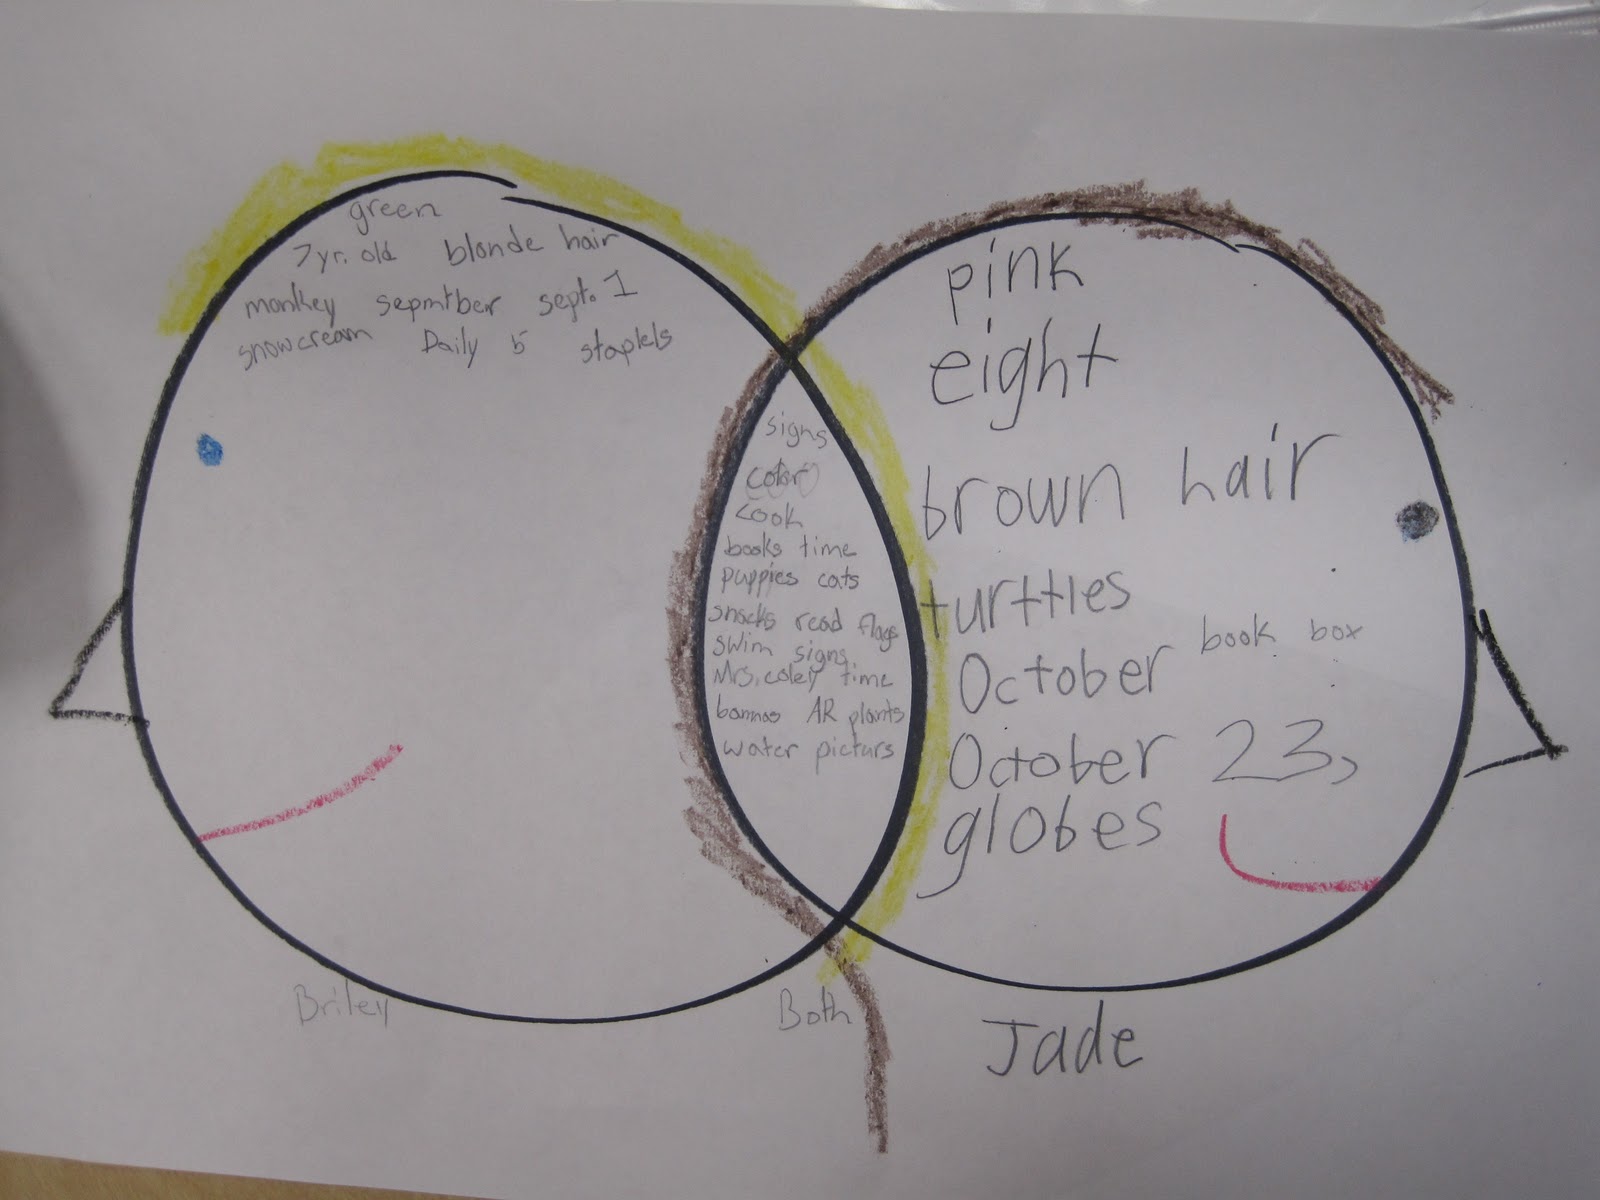 green
7yr. old blonde hair
monkey sepmtber sept. 1
snowcream Daily 5 staplels
signs
color
cook
books time
puppies cats
snacks read flags
swim signs
Mrs. coley time
bannas AR plants
water picturs
pink
eight
brown hair
turttles
October book box
October 23,
globes
Briley
Both
Jade